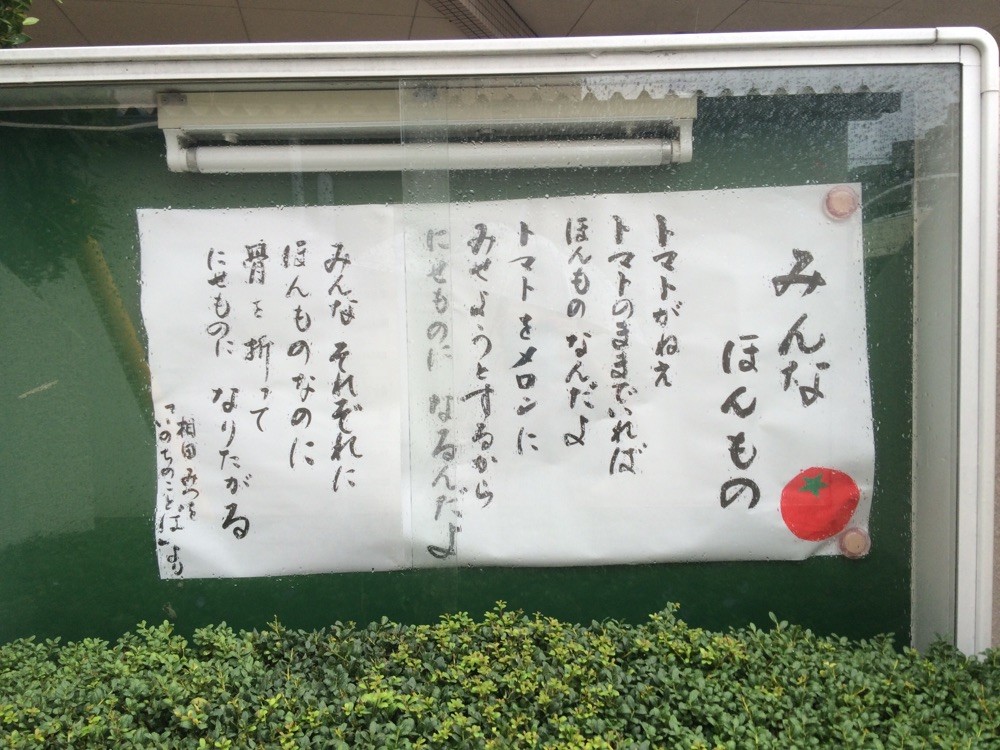 みんな
ほんもの
トマトがねえ
トマトのままでいれば
ほんものなんだよ
トマトをメロンに
みせようとするから
にせものに なるんだよ
みんな それぞれに
ほんものなのに
骨を 折って
にせものに なりたがる
相田 みつを
「いのちのことば」より